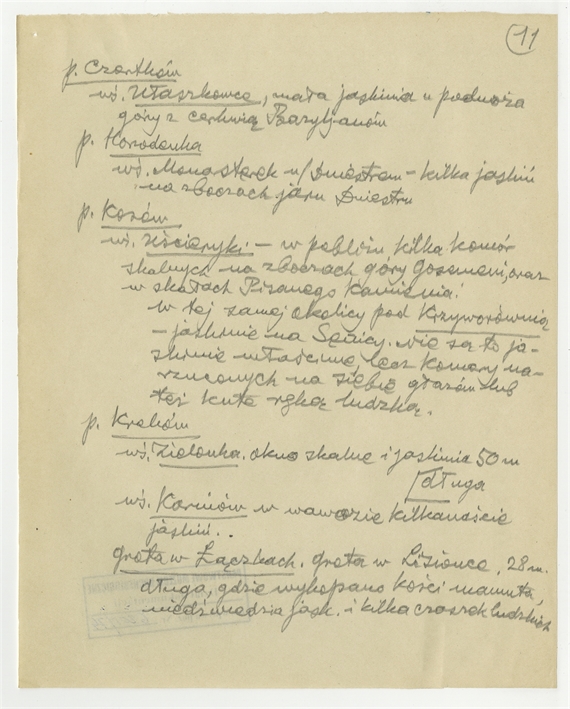 11
p. Czortków
wś. Ułaszkowce, mała jaskinia u podnóża
góry z cerkwią Bazyljanów
p. Horodenka
wś. Monasterek n/Dniestrem - kilka jaskiń
na zboczach jaru Dniestru
p. Kosów
wś. Uścieryki - w pobliżu kilka komór
skalnych na zboczach góry oraz
w skałach Pisanego Kamienia.
w tej samej okolicy pod Krzyworównią
- jaskinie na. Nie są to ja-
skinie właściwe lecz komory na-
rzuconych na siebie głazów lub
też kute ręką ludzką.
p. Kraków
wś. Zielonka. okno skalne i jaskinia 50 m
długa
wś. Karniów w wąwozie kilkanaście
jaskiń..
grota w Łączkach. grota w 28 m.
długa, gdzie wykopano kości mamuta,
niedźwiedzia jask. i kilka czaszek ludzkich